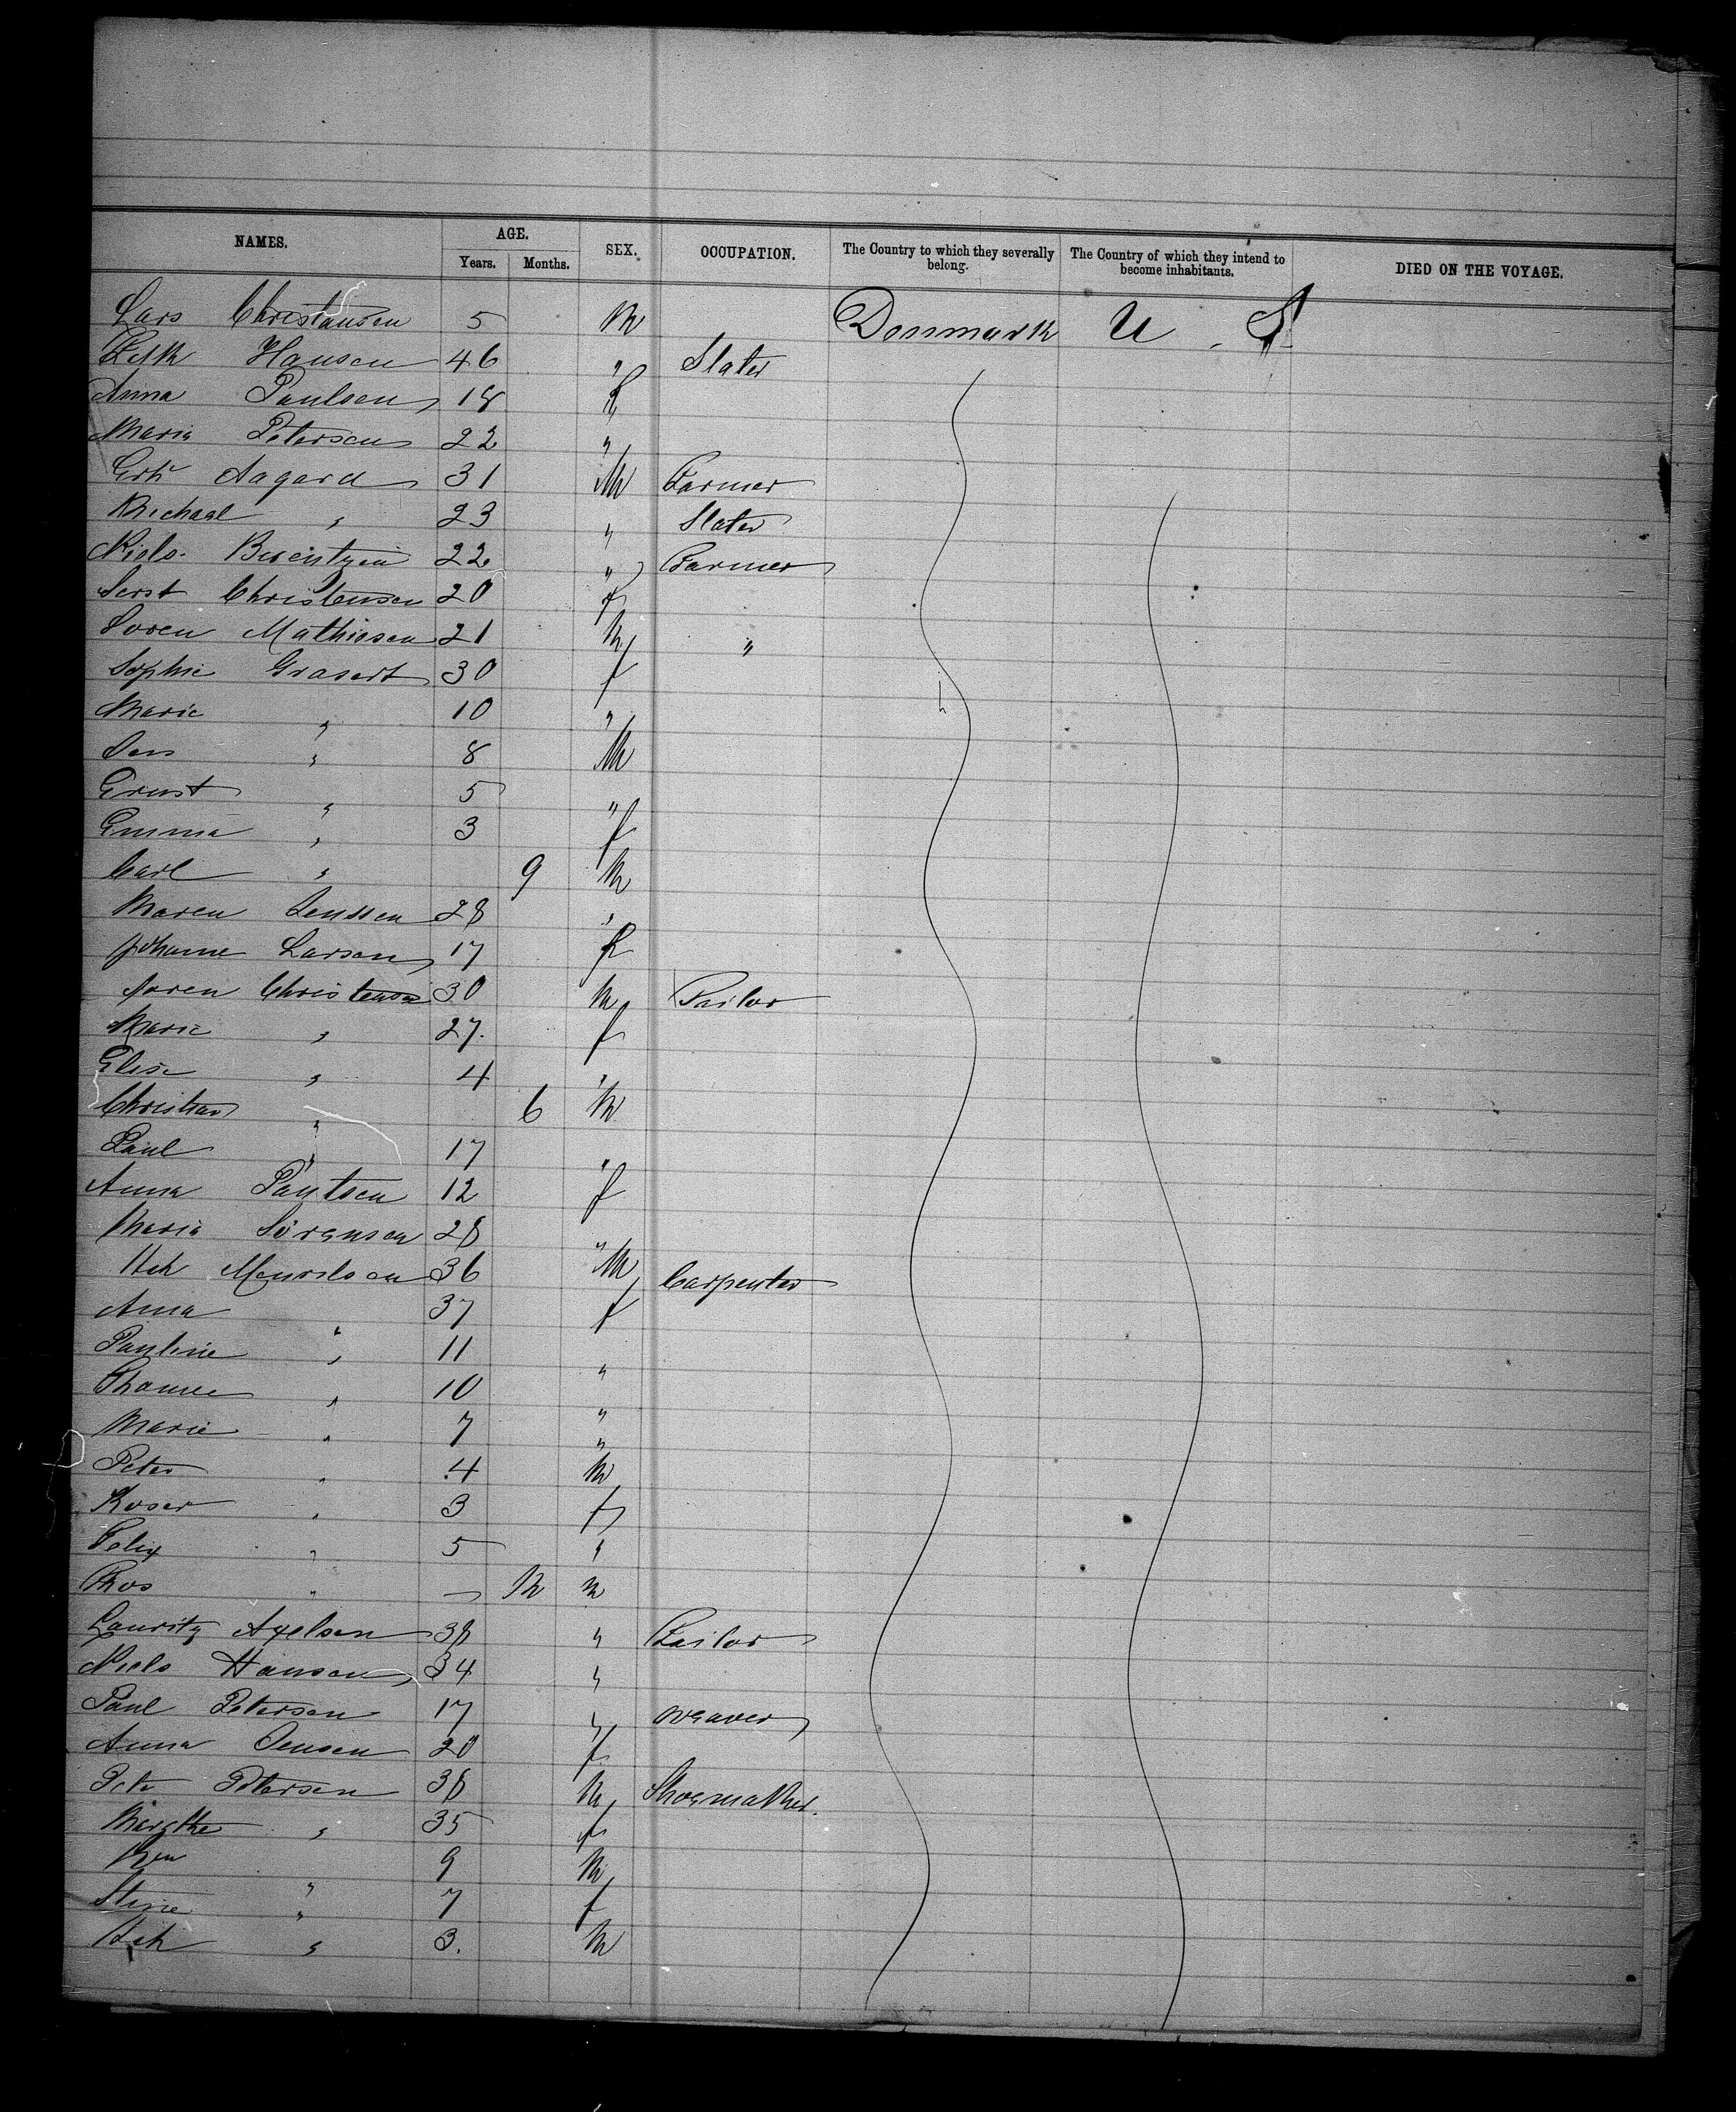 NAMES. AGE. SEX. OCCUPATION. The Country to which they severally belong. The Country of which they intend to become inhabitants. DIED ON THE VOYAGE.
Years. Months.
Lars Christansen 5 M Denmark U. S.
Hansen 46 " Slater
Anna Paulsen 18 f
Maria Petersen 22 "
Aagard 31 M Farmer
Michael " 23 " Slater
Niels 22 " Farmer
Christensen 20 f
Soren Mathiesen 21 M "
Sophie Grasert 30 f
Marie " 10 "
" 8 M
Ernst " 5 "
Emma " 3 f
Carl " 9 M
Maren Jenssen 28 "
Johanne Larsen 17 f
Soren Christensen 30 M Tailor
Marie " 27. f
Elise " 4 "
Christian " 6 M
Paul " 17 "
Anna Paulsen 12 f
Maria Sörensen 28 "
36 M Carpenter
Anna " 37 f
Pauline " 11 "
" 10 "
Marie " 7 "
Peter " 4 M
" 3 f
Felix " 5 "
" — M
Lauritz Axelsen 38 " Tailor
Niels Hansen 34 "
Paul Petersen 17 " Weaver
Anna Jensen 20 f
Petr Petersen 38 M Shoemaker.
" 35 f
" 9 M
Stine " 7 f
" 3. M